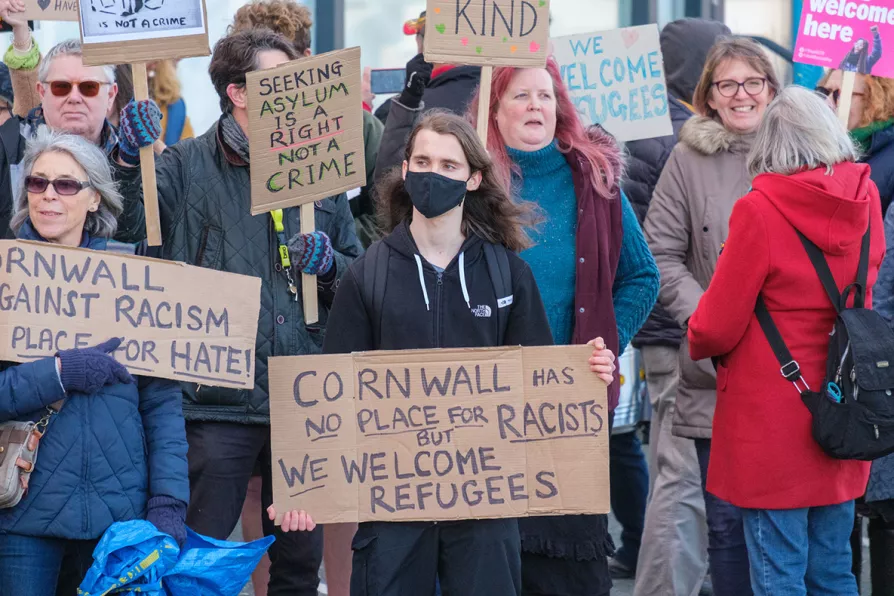 HAVE
IS NOT A CRIME
KIND
WE
WELCOME
REFUGEES
welcome
here
SEEKING
ASYLUM
IS A
RIGHT
NOT A
CRIME
CORNWALL
AGAINST RACISM
PLACE FOR HATE!
THE
NORTH
FACE
CORNWALL HAS
NO PLACE FOR RACISTS
BUT
WE WELCOME
REFUGEES